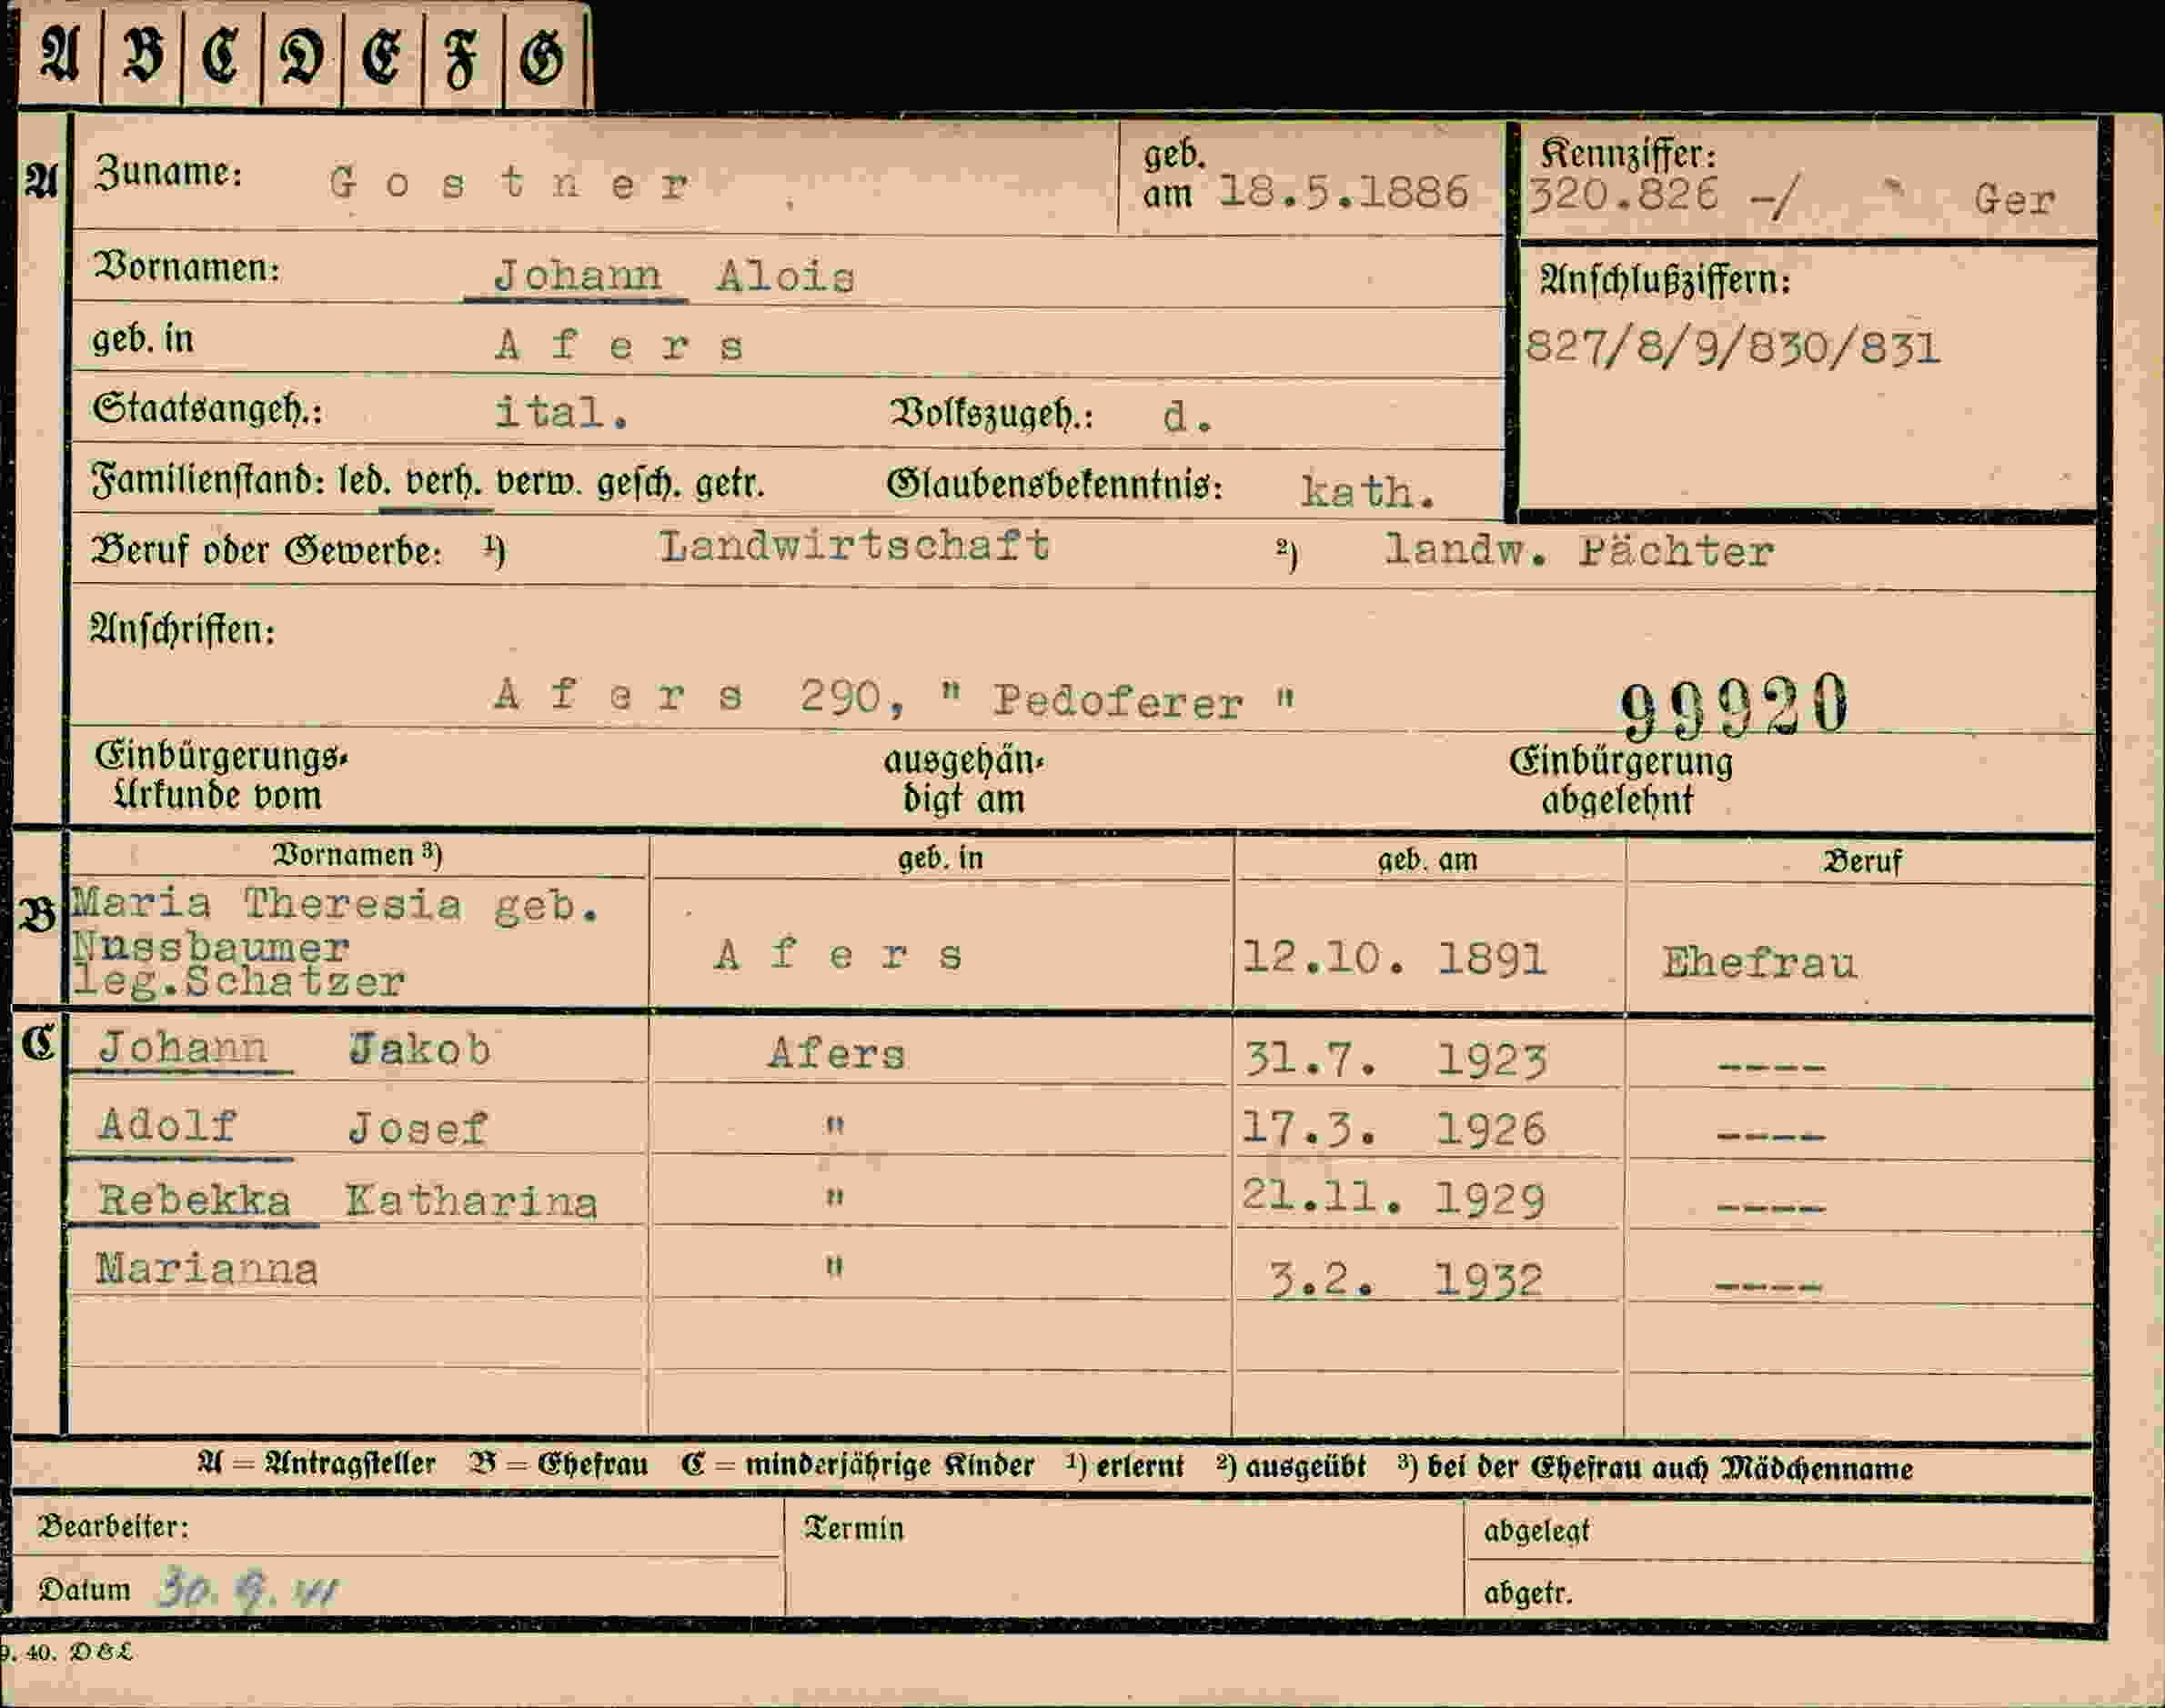 A B C D E F G
A Zuname: Gostner geb. am 18.5.1886 Kennziffer: 320.826 -/ Ger
Vornamen: Johann Alois Anschlußziffern:
geb. in Afers 827/8/9/830/831
Staatsangeh.: ital. Volkszugeh.: d.
Familienstand: led. verh. verw. gesch. getr. Glaubensbekenntnis: kath.
Beruf oder Gewerbe: 1) Landwirtschaft 2) landw. Pächter
Anschriften:
Afers 290, " Pedoferer " 99920
Einbürgerungs- ausgehän- Einbürgerung
Urkunde vom digt am abgelehnt
Vornamen 3) geb. in geb. am Beruf
B Maria Theresia geb.
Nussbaumer Afers 12.10. 1891 Ehefrau
leg.Schatzer
C Johann Jakob Afers 31.7. 1923 ----
Adolf Josef " 17.3. 1926 ----
Rebekka Katharina " 21.11. 1929 ----
Marianna " 3.2. 1932 ----
A = Antragsteller B = Ehefrau C = minderjährige Kinder 1) erlernt 2) ausgeübt 3) bei der Ehefrau auch Mädchenname
Bearbeiter: Termin abgelegt
Datum 30. 9. 41 abgetr.
9. 40. D&L